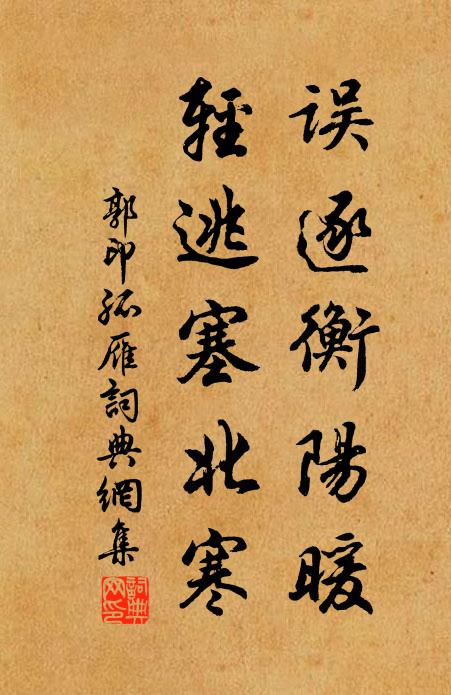 誤逐衡陽暖
輕逃塞北寒
郭印孤雁詞典網集
詞典
网印